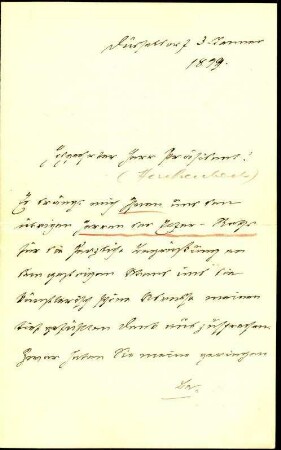 Düsseldorf 3 Januar
1899.
Geehrter Herr Präsident!
Es drängt mich Ihnen und den
übrigen Herren des
für die herzliche Begrüßung an
dem gestrigen Abend und die
künstlerisch schöne meinen
tief gefühlten Dank auszusprechen.
Zwar haben Sie meine geringen